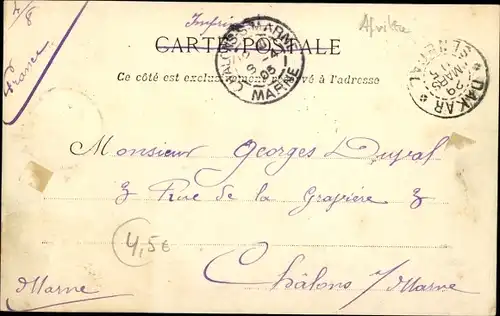 4/8
France
Imprimé
Afrika
CARTE POSTALE
Ce côté est exclusivement réservé à l'adresse
CHALONS-S-MARNE
MARNE
DAKAR
SENEGAL
Monsieur Georges Duval
3 Rue de la Gravière 3
4,5€
Châlons s/Marne
Marne